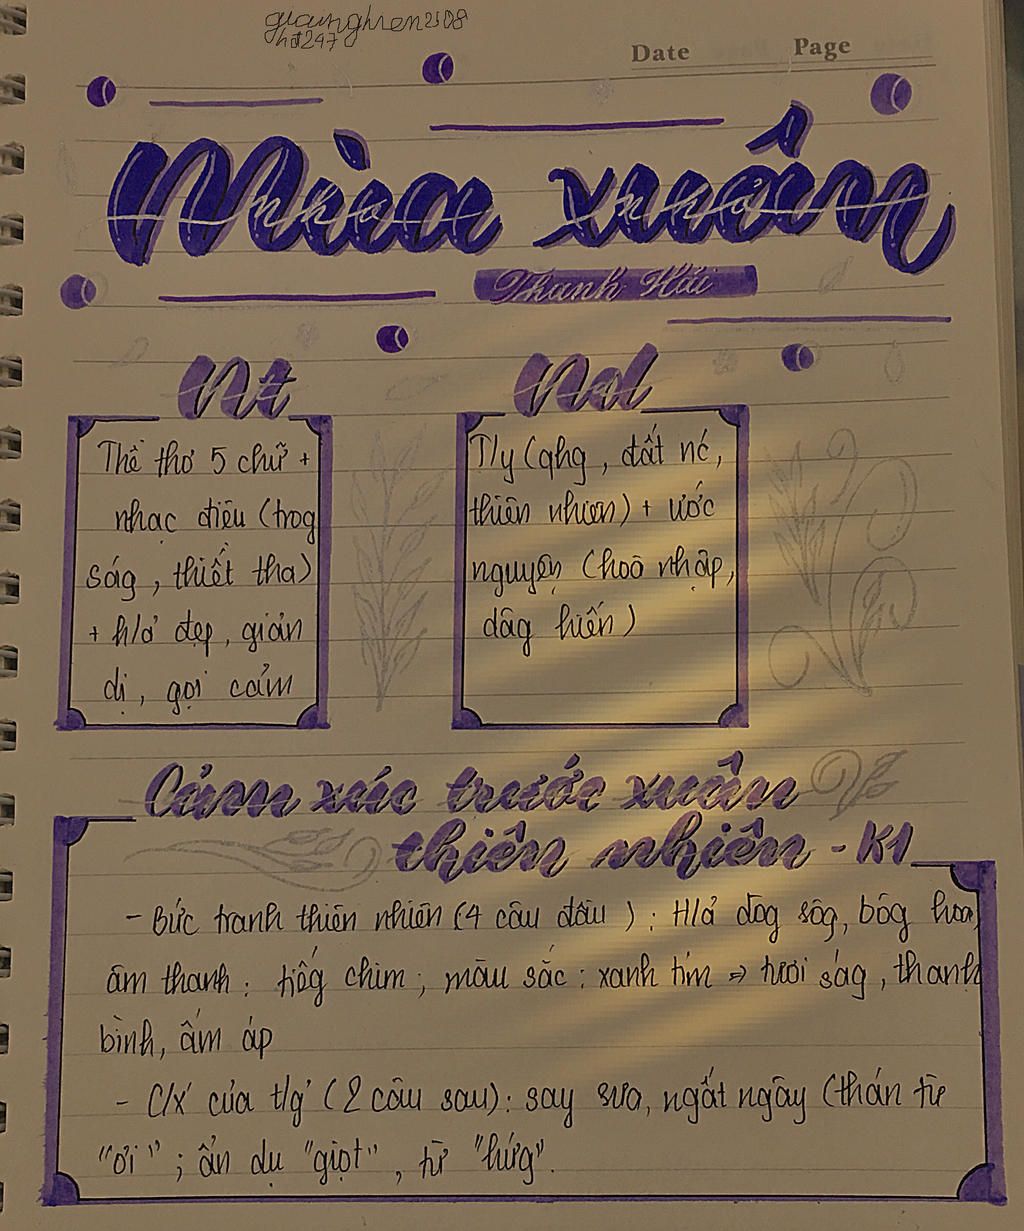 giainghien2508
hdt247
Date Page
Mùa xuân
nho nhỏ
Thanh Hải
Nt
Nd
Thể thơ 5 chữ +
nhạc điệu (trog
ság, thiết tha)
+ h/ả đẹp, giản
dị, gợi cảm
T/y (qhg, đất nc,
thiên nhiên) + ước
nguyện (hoà nhập,
dâg hiến)
Cảm xúc trước xuân
thiên nhiên - K1
- Bức tranh thiên nhiên (4 câu đầu): H/ả dòg sôg, bôg hoa,
âm thanh: tiếg chim; màu sắc: xanh tím => tươi ság, thanh
bình, ấm áp
- C/x' của t/g' (2 câu sau): say sưa, ngất ngây (thán từ
"ơi"; ẩn dụ "giọt", từ "hứg".